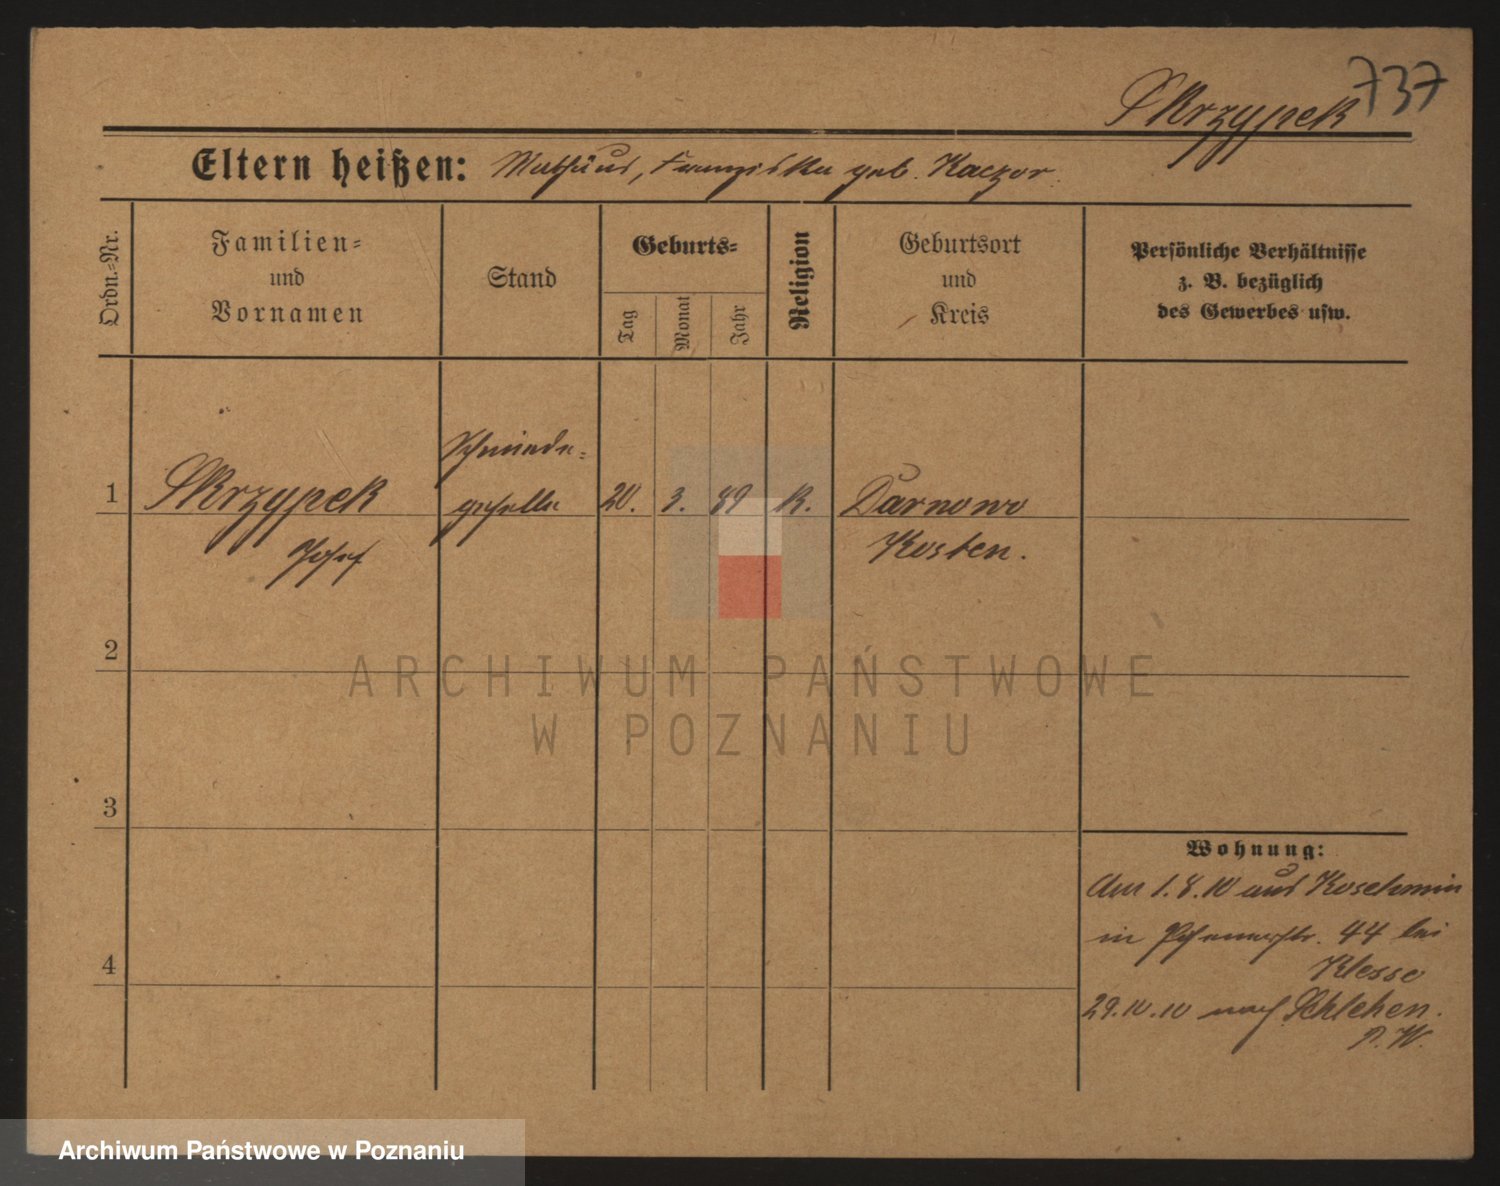 737
Skrzypek
Eltern heißen: Mathäus, Franziska geb. Kaczor.
Ordn.-Nr.
Familien-
und
Vornamen
Stand
Geburts-
Tag
Monat
Jahr
Religion
Geburtsort
und
Kreis
Persönliche Verhältnisse
z. B. bezüglich
des Gewerbes usw.
1
Skrzypek
Josef
Schmiede-
geselle
20. 3. 89 K.
Darnowo
Kosten.
2
3
4
Wohnung:
Am 1.8.10 aus Koschmin
in 44 bei
Klesse
29.10.10 nach Schlehen.
P.W.
ARCHIWUM PAŃSTWOWE
W POZNANIU
Archiwum Państwowe w Poznaniu